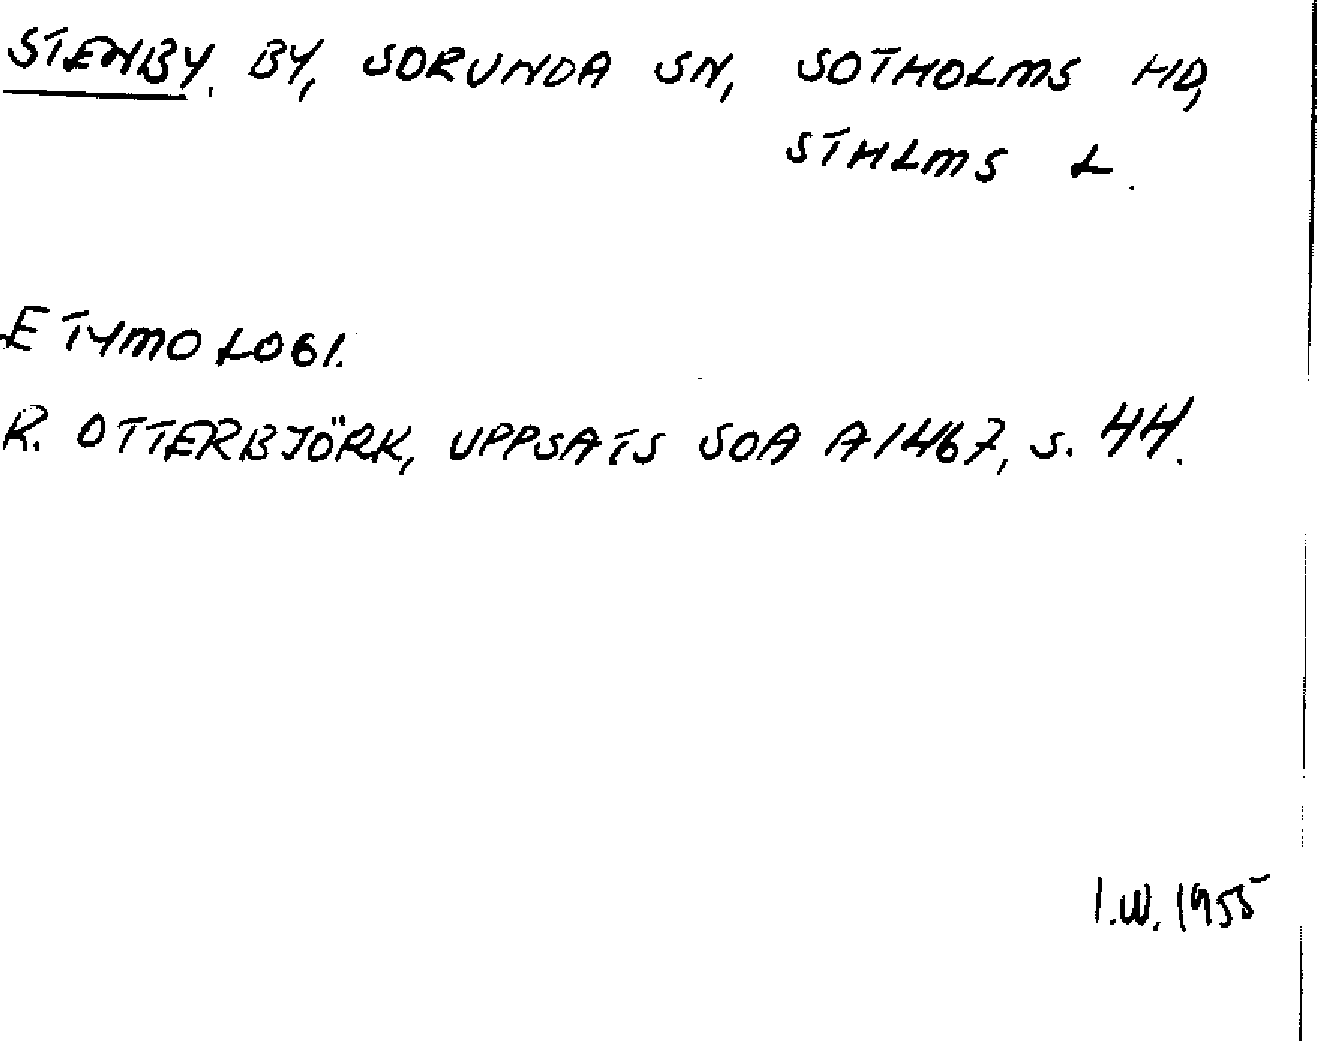 STENBY. BY, SORUNDA SN, SOTHOLMS HD,
STHLMS L.
ETYMOLOGI.
R. OTTERBJÖRK, UPPSATS SOA A1467, S. 44.
I.W. 1955